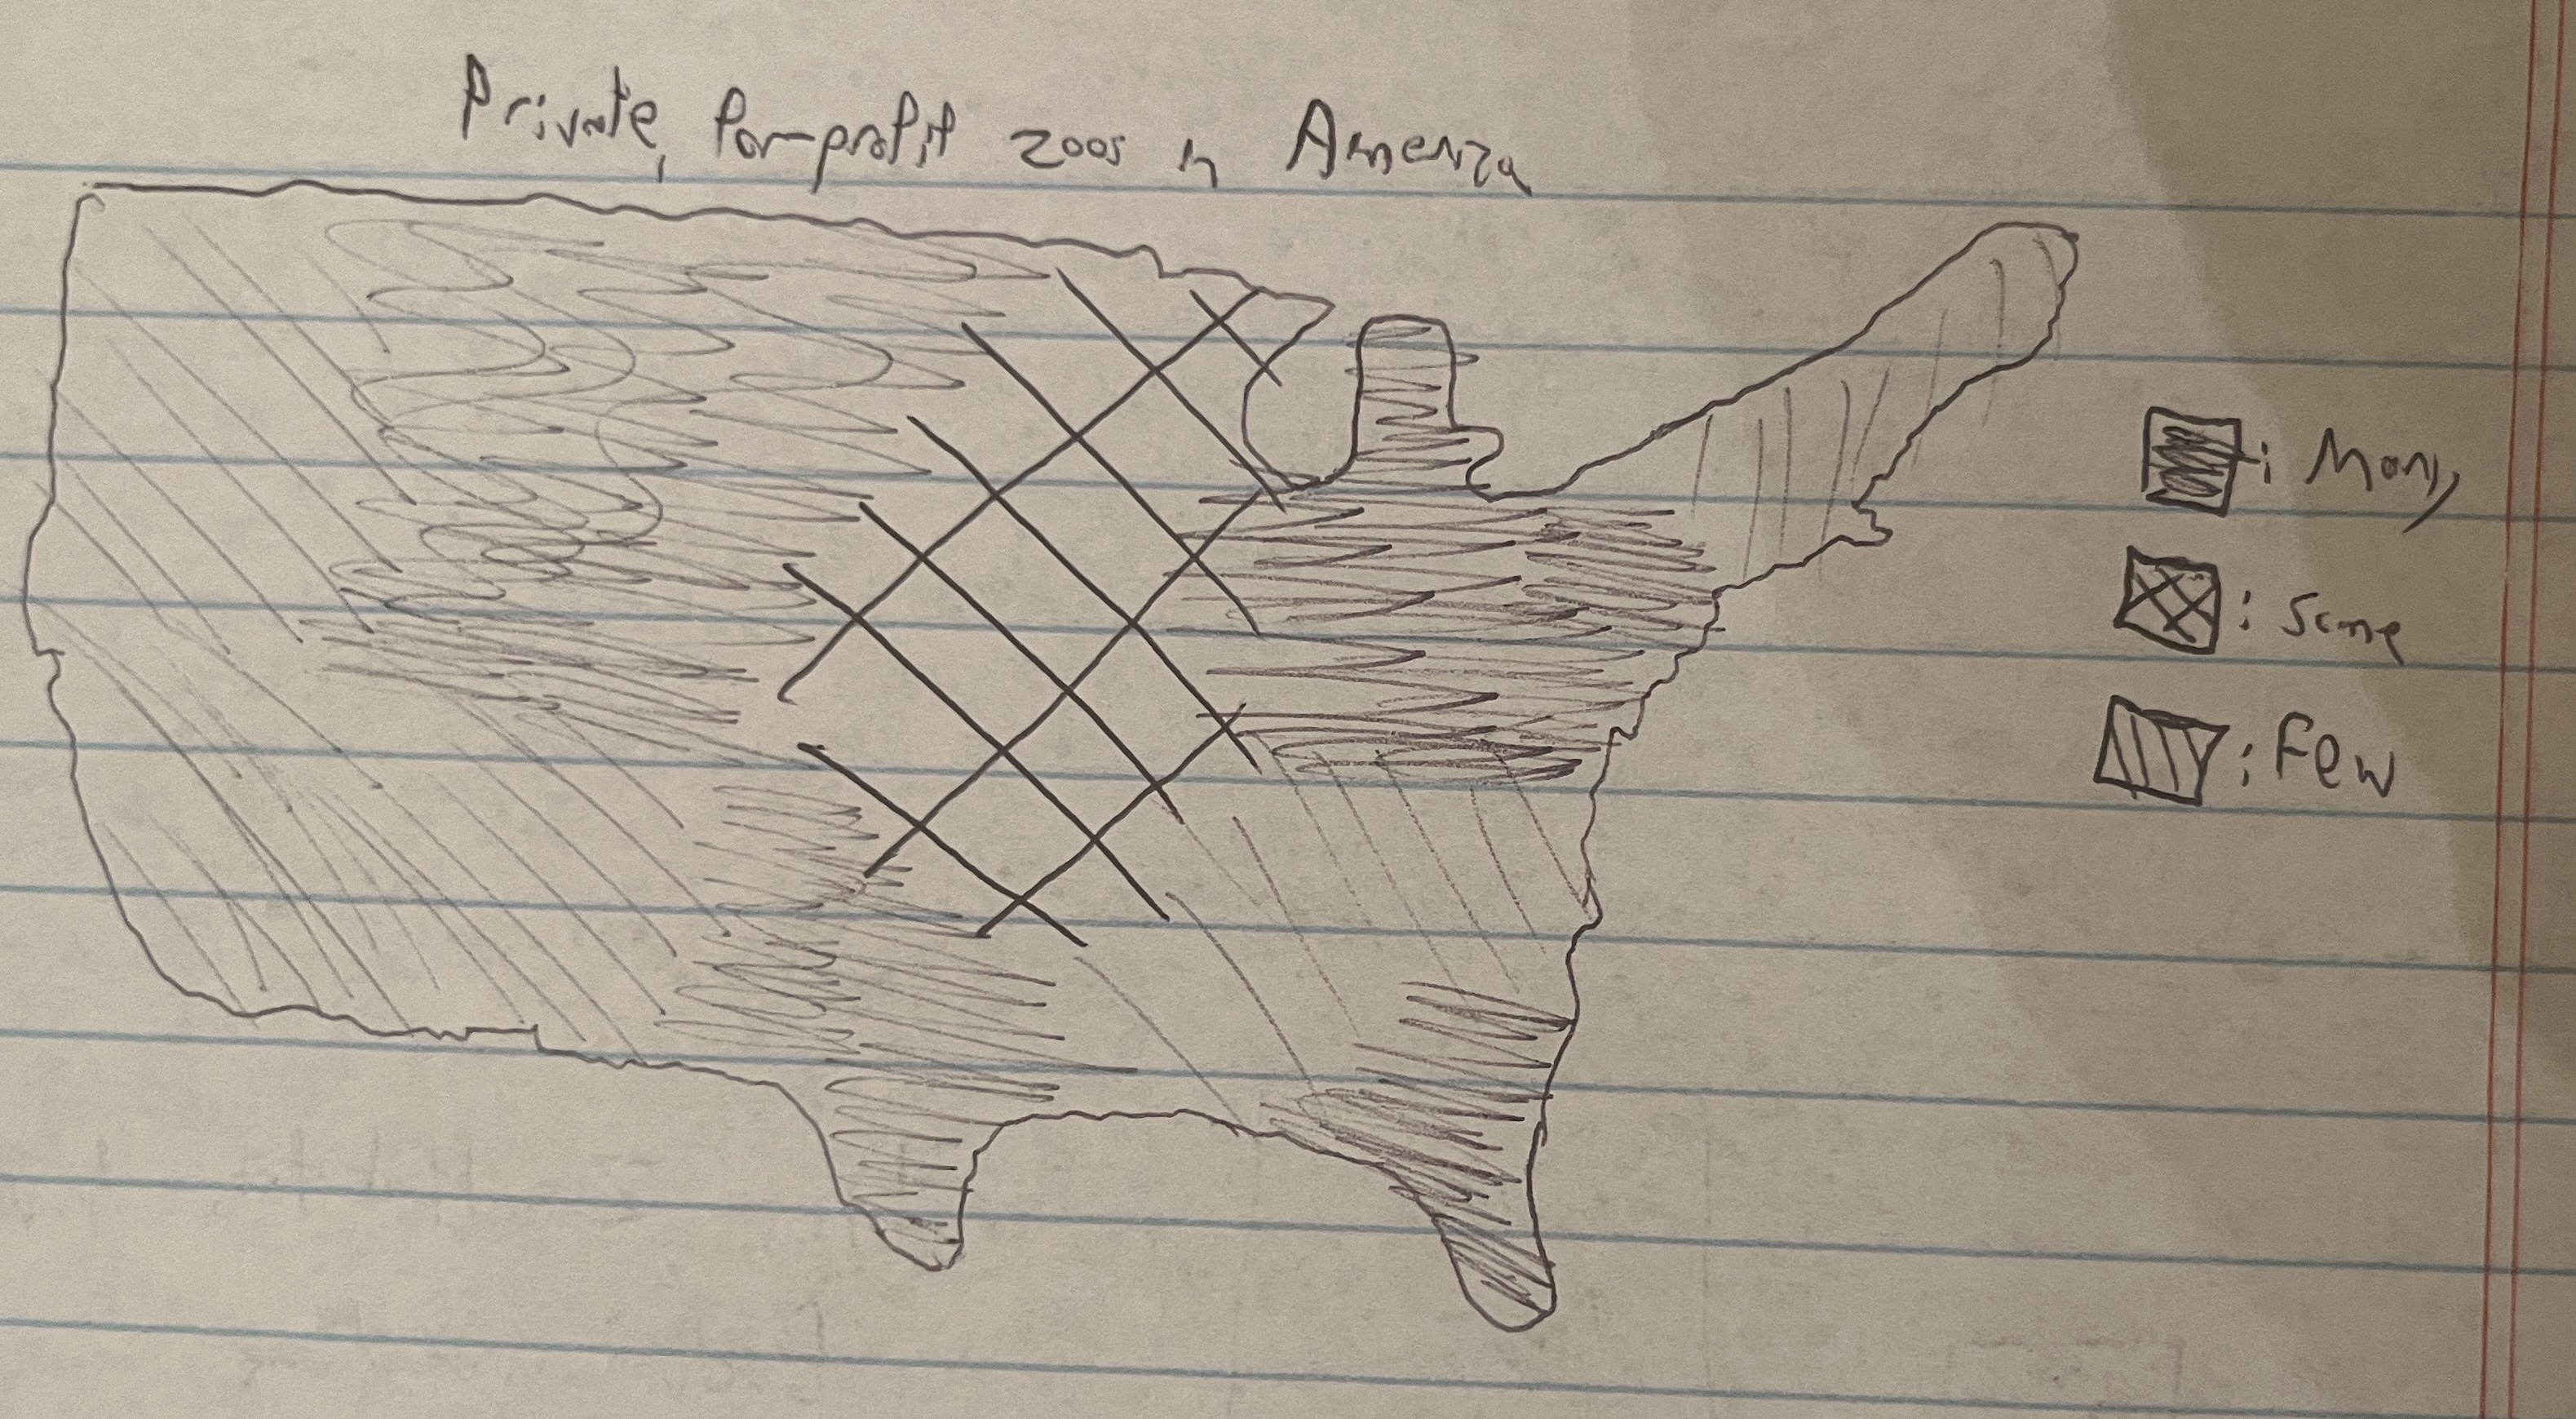 Private, for-profit zoos in America
: Many
: Some
: Few